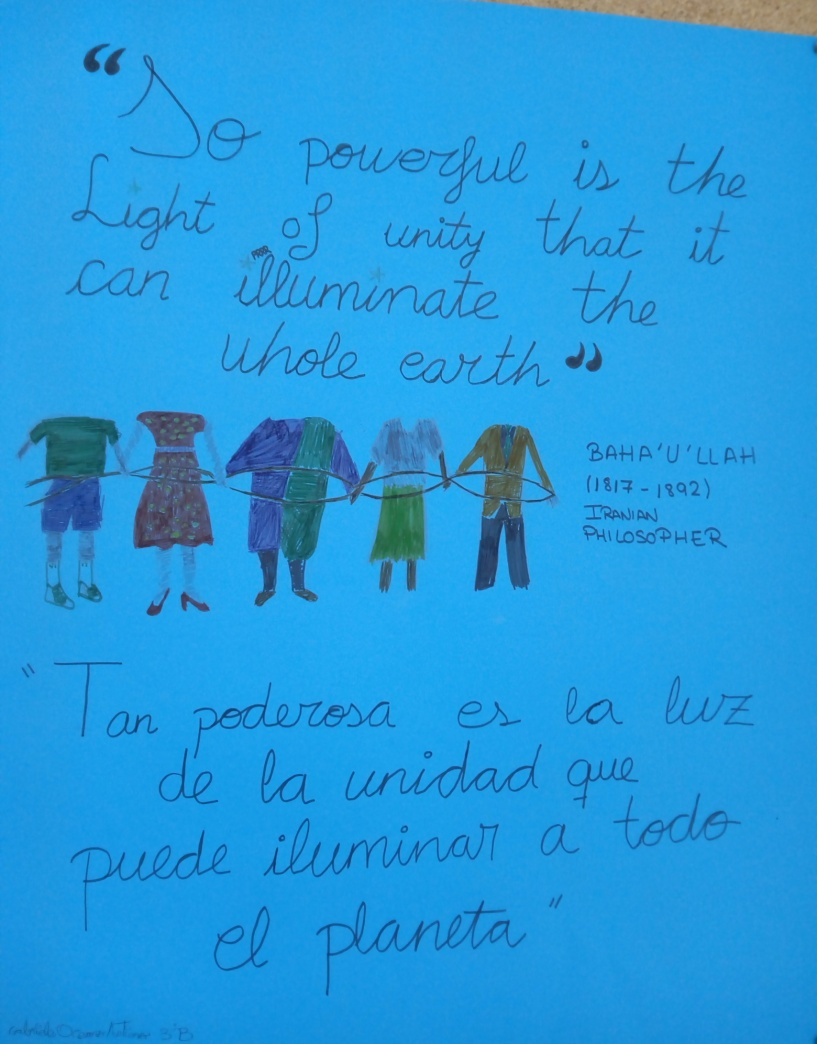 “So powerful is the
Light of unity that it
can illuminate the
whole earth”
BAHA'U'LLAH
(1817-1892)
IRANIAN
PHILOSOPHER
"Tan poderosa es la luz
de la unidad que
puede iluminar a todo
el planeta"
3ºB